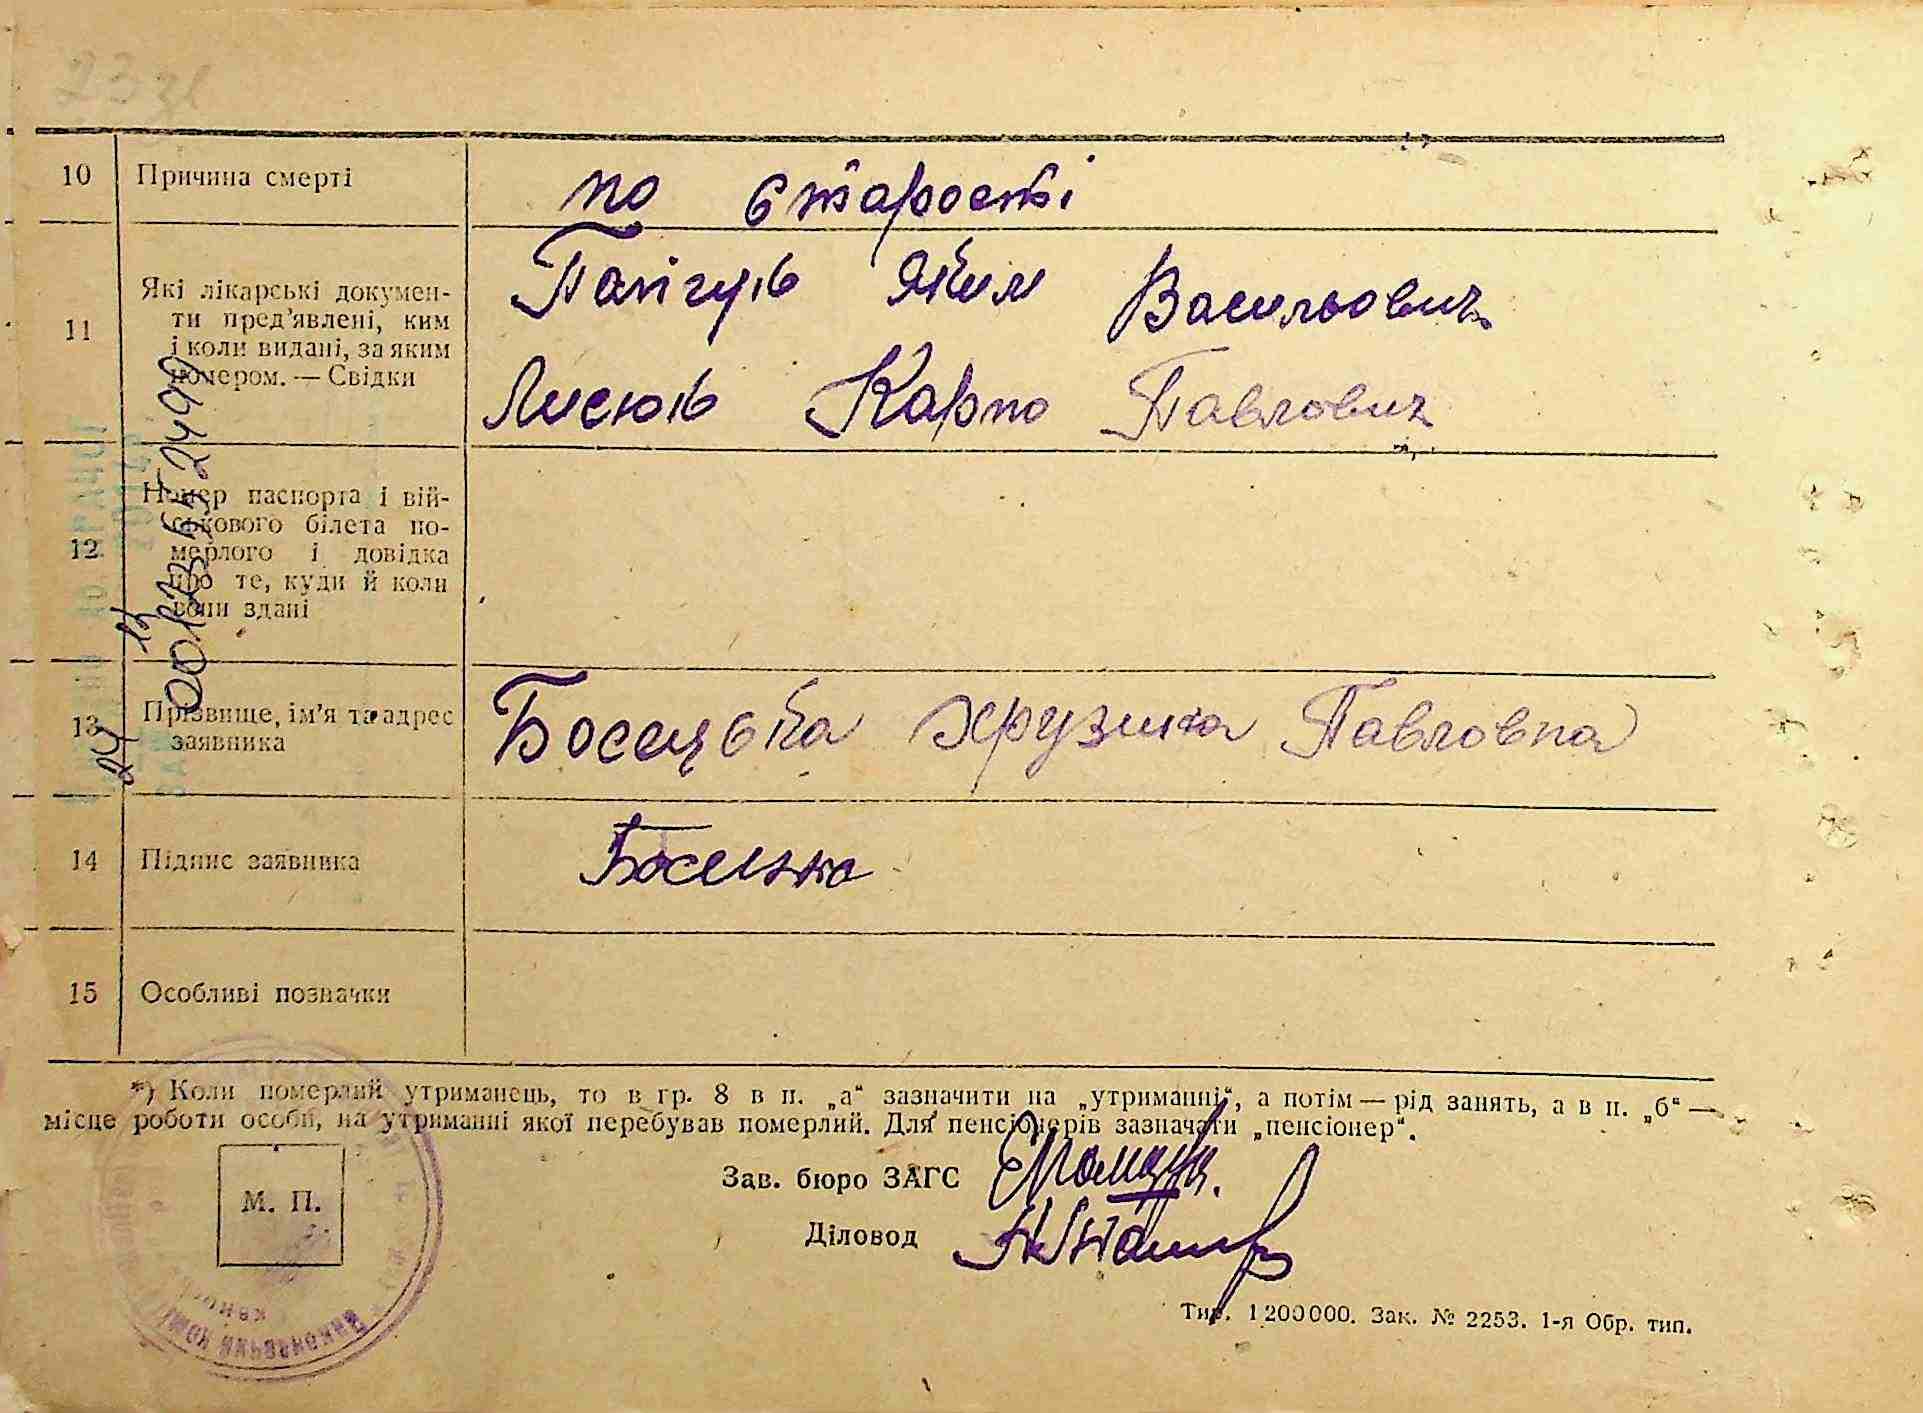 10 Причина смерті по старості
11 Які лікарські докумен-
ти пред'явлені, ким
і коли видані, за яким
номером. — Свідки
Яким Васильович
Лисюк Карпо Павлович
12 Номер паспорта і вій-
ськового білета по-
мерлого і довідка
про те, куди й коли
вони здані
13 Прізвище, ім'я та адрес
заявника
Босецька Хрузина Павловна
14 Підпис заявника Босецька
15 Особливі позначки
*) Коли померлий утриманець, то в гр. 8 в п. „а“ зазначити на „утриманні“, а потім — рід занять, а в п. „б“ —
місце роботи особи, на утриманні якої перебував померлий. Для пенсіонерів зазначати „пенсіонер“.
Зав. бюро ЗАГС
М. П.
Діловод
Тир. 1200000. Зак. № 2253. 1-я Обр. тип.